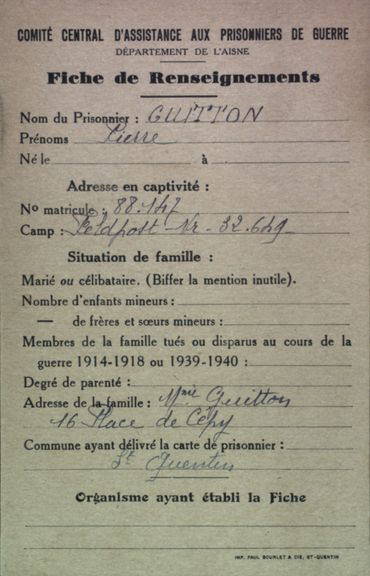 COMITÉ CENTRAL D'ASSISTANCE AUX PRISONNIERS DE GUERRE
DÉPARTEMENT DE L'AISNE
Fiche de Renseignements
Nom du Prisonnier : GUITTON
Prénoms Pierre
Né le à
Adresse en captivité :
No matricule : 88.147
Camp : Feldpost Nr 32.649
Situation de famille :
Marié ou célibataire. (Biffer la mention inutile).
Nombre d'enfants mineurs :
— de frères et sœurs mineurs :
Membres de la famille tués ou disparus au cours de la
guerre 1914-1918 ou 1939-1940 :
Degré de parenté :
Adresse de la famille : Mme Guitton
16 Place de Cépy
Commune ayant délivré la carte de prisonnier :
St Quentin
Organisme ayant établi la Fiche
IMP. PAUL BOURLET & CIE, ST-QUENTIN